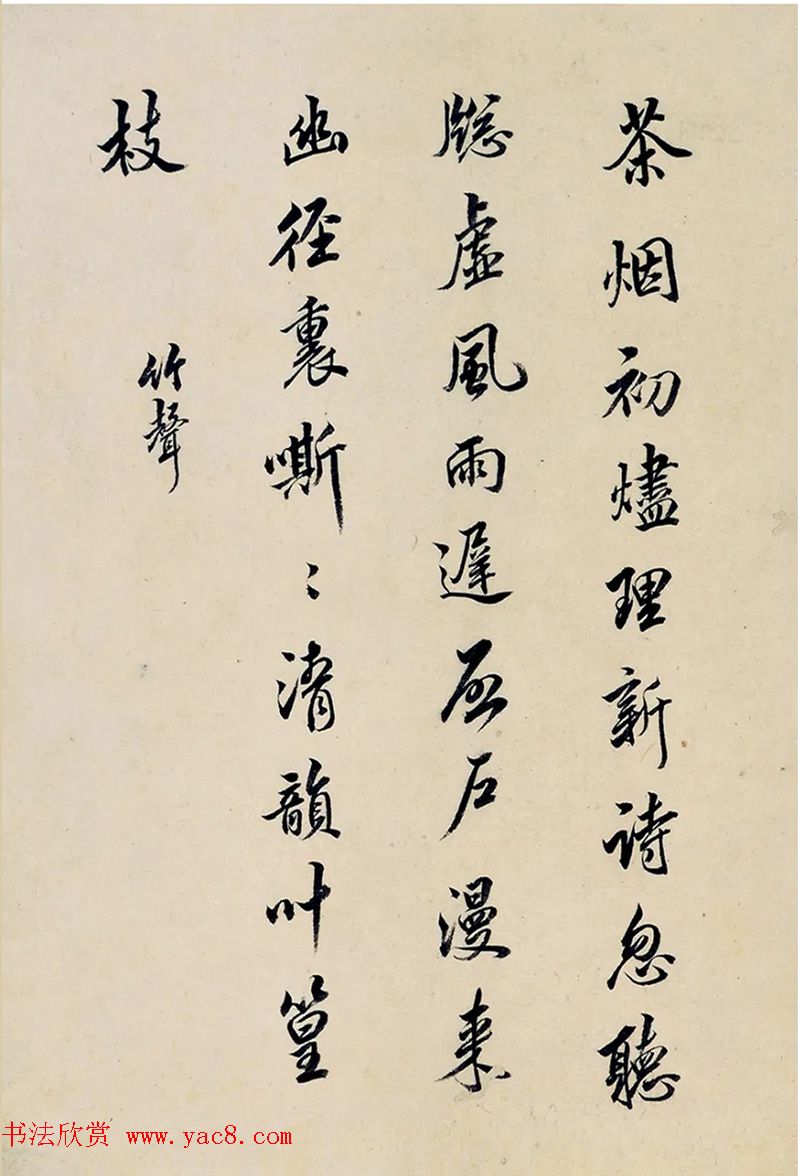 茶烟初燼理新詩忽聽
牕虛風雨遲石漫来
幽徑裏嘶〻清韻叶篁
枝
竹聲
书法欣赏 www.yac8.com